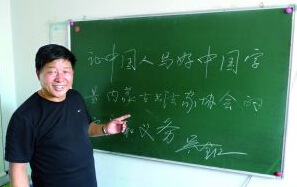 让中国人写好中国字
是内蒙古书法家协会的
义务